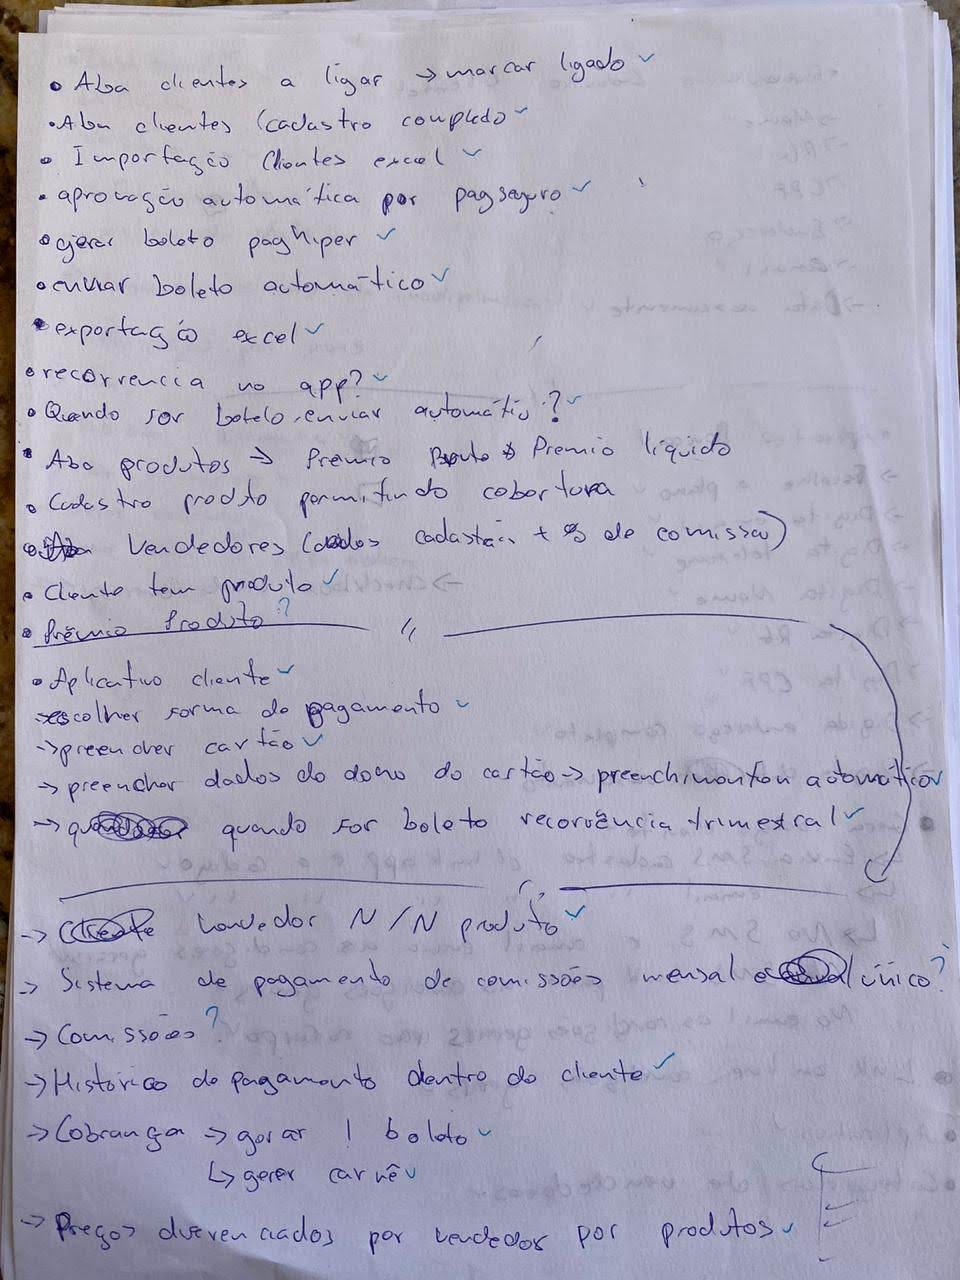 • Aba clientes a ligar → marcar ligado ✓
• Aba clientes (cadastro completo ✓
• Importação Clientes excel ✓
• aprovação automática por pagseguro ✓
• gerar boleto paghiper ✓
• enviar boleto automático ✓
• exportação excel ✓
• recorrencia no app? ✓
• Quando for botelo enviar automátio? ✓
• Aba produtos → Prêmio Bruto $ Premio líquido
• Cadastro produto permitindo cobertura
• Vendedores (dados cadastrais + % de comissão)
• Cliente tem produto ✓
• Prêmio Produto?
• Aplicativo cliente ✓
→ escolher forma de pagamento ✓
→ preencher cartão ✓
→ preencher dados do dono do cartão → automático ✓
→ quando for boleto recorrência trimestral ✓
→ Vendedor N/N produto ✓
→ Sistema de pagamento de comissões mensal único?
→ Comissões?
→ Histórico de pagamento dentro do cliente ✓
→ Cobrança → gerar 1 boleto ✓
↳ gerer carnê ✓
→ Preços diverenciados por vendedor por produtos ✓